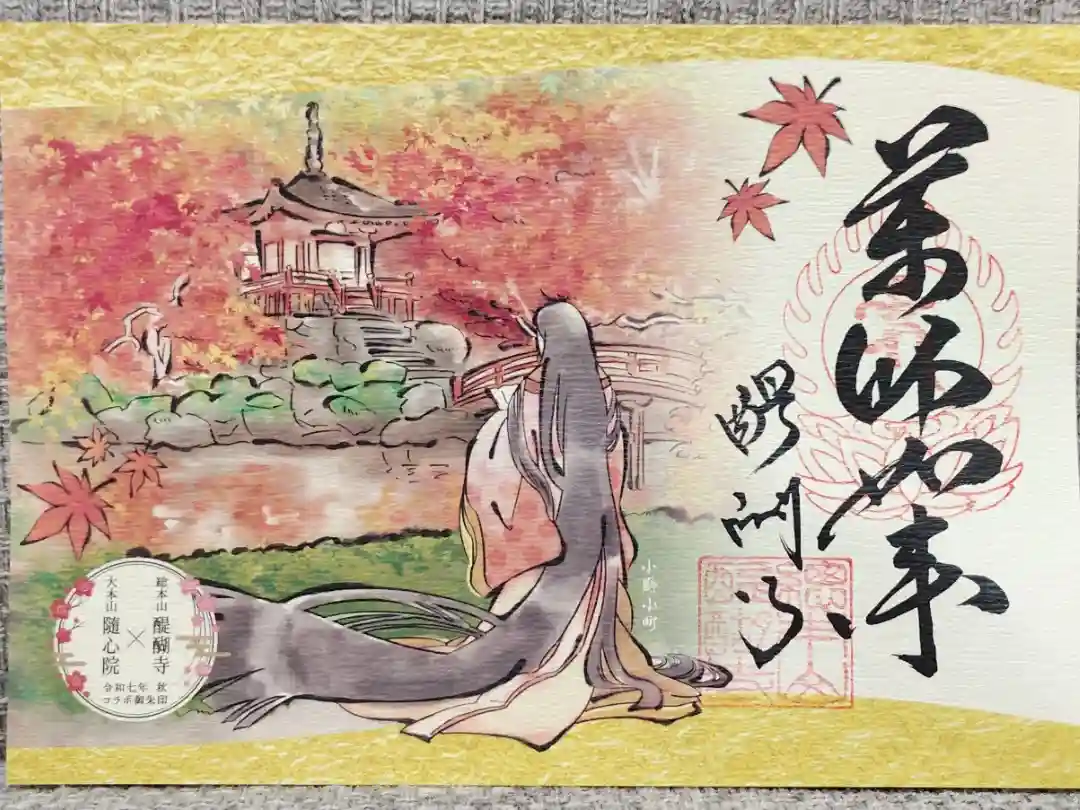 薬師如来
醍醐寺
小野小町
総本山 醍醐寺
×
大本山 隨心院
令和七年 秋
コラボ御朱印